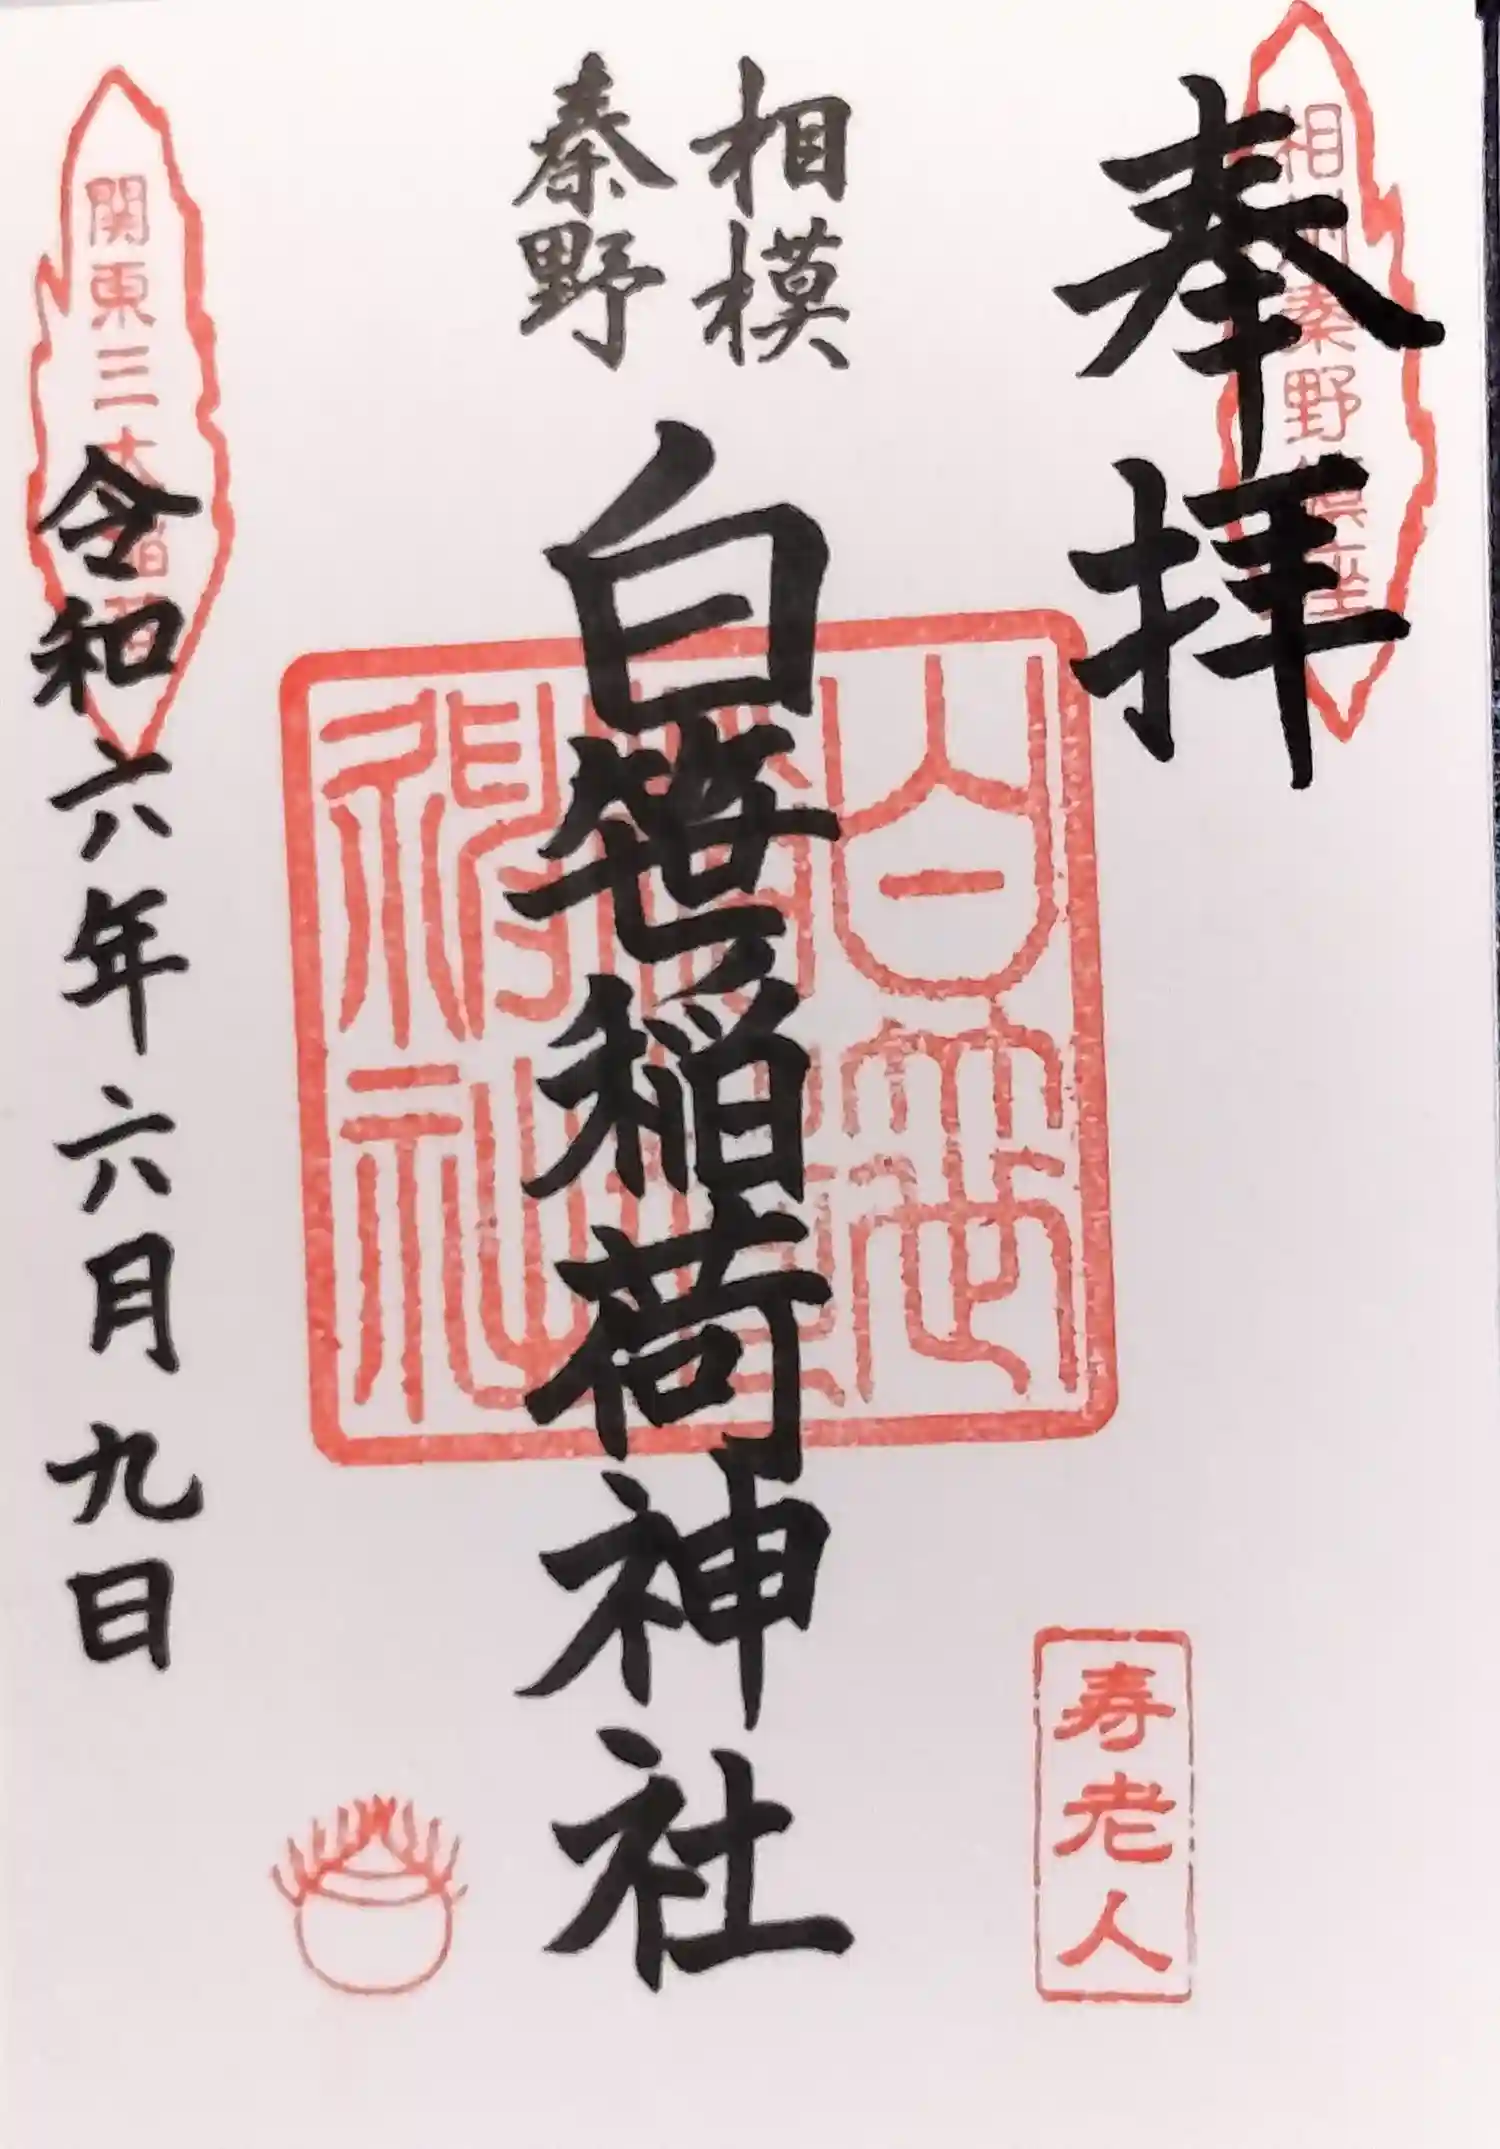 奉拝
相模
秦野
白笹稲荷神社
令和六年六月九日
関東三
秦野
白笹
神社
寿老人